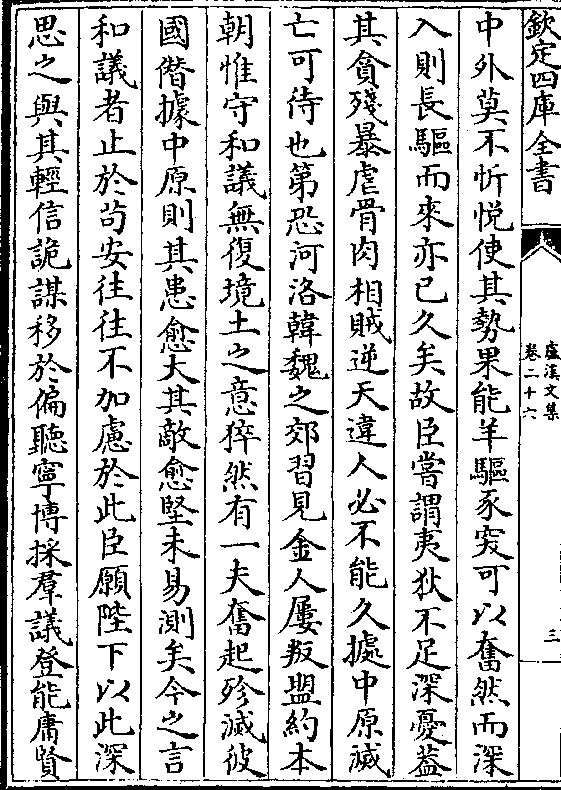 欽定四庫全書
盧溪文集
卷二十六
三
中外莫不忻悅使其勢果能羊驅豕突可以奮然而深
入則長驅而來亦已久矣故臣嘗謂夷狄不足深憂蓋
其貪殘暴虐骨肉相賊逆天違人必不能久據中原滅
亡可待也第恐河洛韓魏之郊習見金人屢叛盟約本
朝惟守和議無復境土之意猝然有一夫奮起殄滅彼
國僭據中原則其患愈大其敵愈堅未易測矣今之言
和議者止於苟安往往不加慮於此臣願陛下以此深
思之與其輕信詭謀移於偏聽寧博採羣議登能庸賢